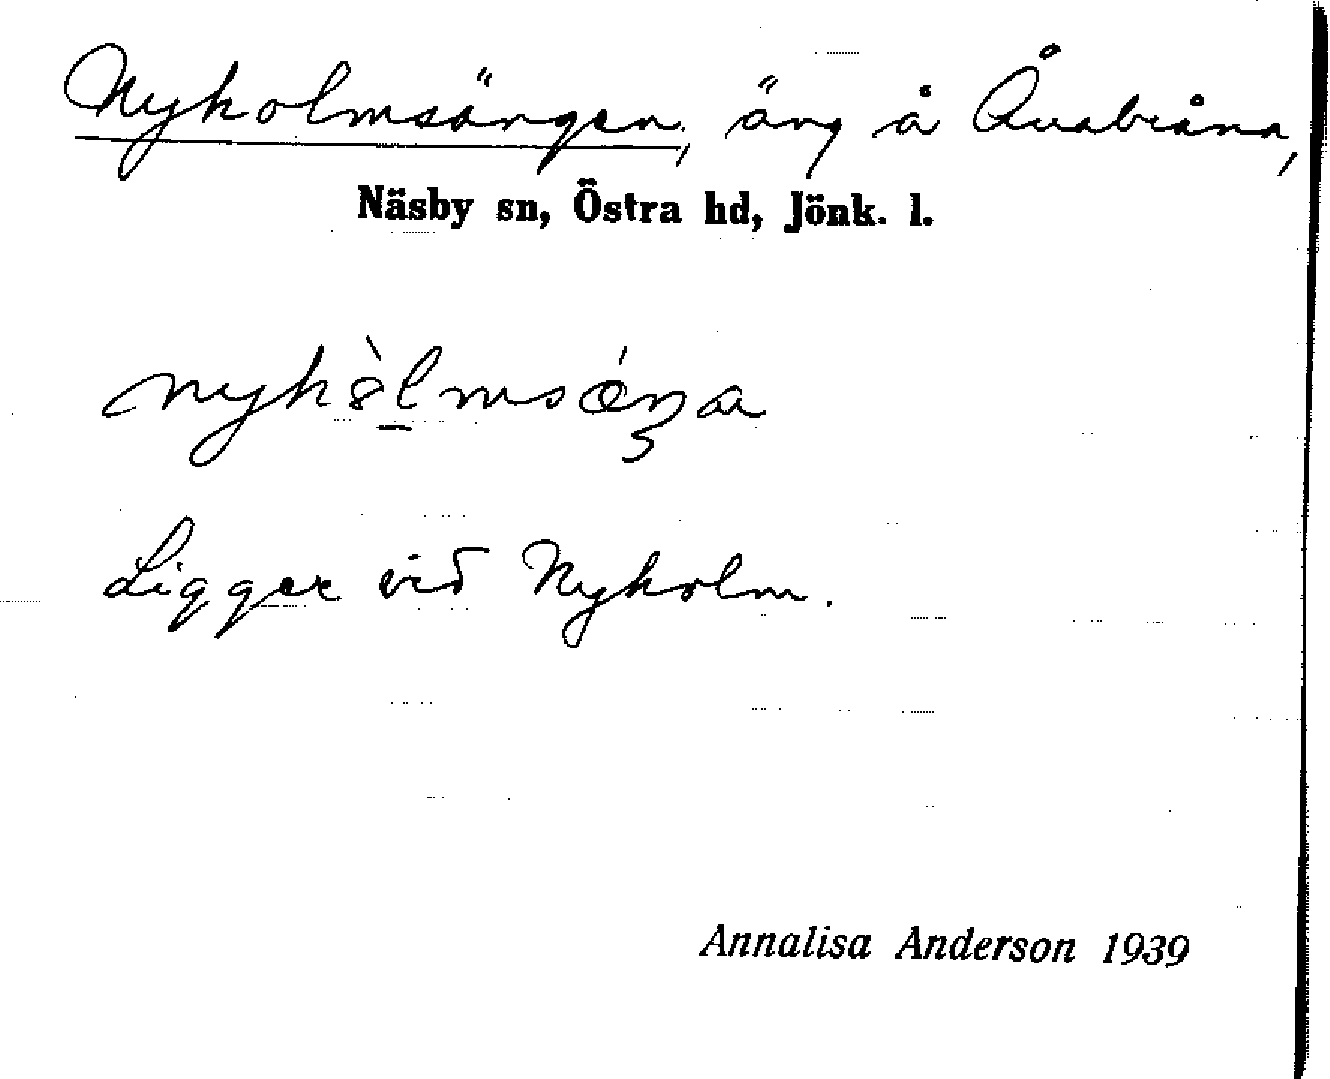 Nyholmsängen, äng å Åuabråna,
Näsby sn, Östra hd, Jönk. l.
Ligger vid Nyholm.
Annalisa Anderson 1939